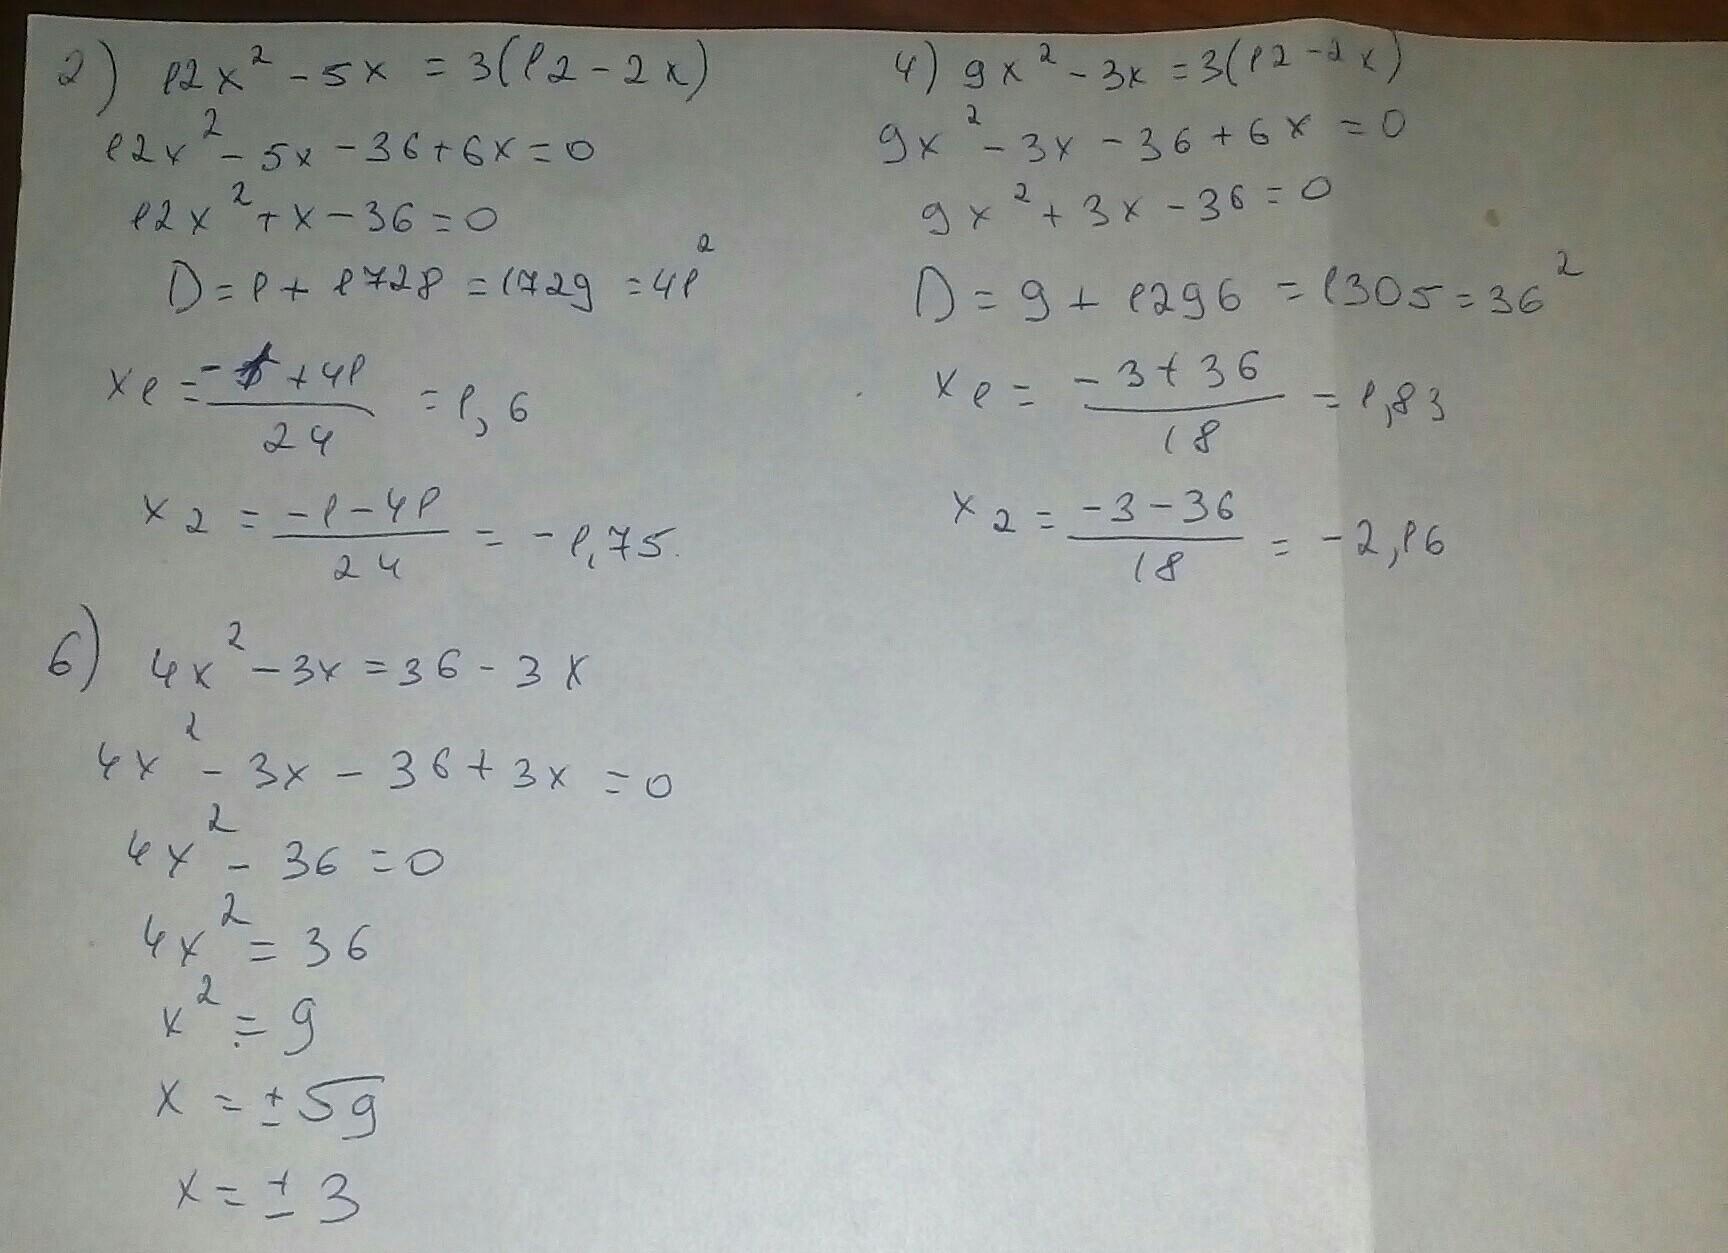 2) 12x² - 5x = 3(12 - 2x)
12x² - 5x - 36 + 6x = 0
12x² + x - 36 = 0
D = 1 + 1728 = 1729 = 41²
x1 = (- 1 + 41)/24 = 1,6
x2 = (-1 - 41)/24 = -1,75.
4) 9x² - 3x = 3(12 - 2x)
9x² - 3x - 36 + 6x = 0
9x² + 3x - 36 = 0
D = 9 + 1296 = 1305 = 36²
x1 = (-3 + 36)/18 = 1,83
x2 = (-3 - 36)/18 = -2,16
6) 4x² - 3x = 36 - 3x
4x² - 3x - 36 + 3x = 0
4x² - 36 = 0
4x² = 36
x² = 9
x = ±√9
x = ± 3